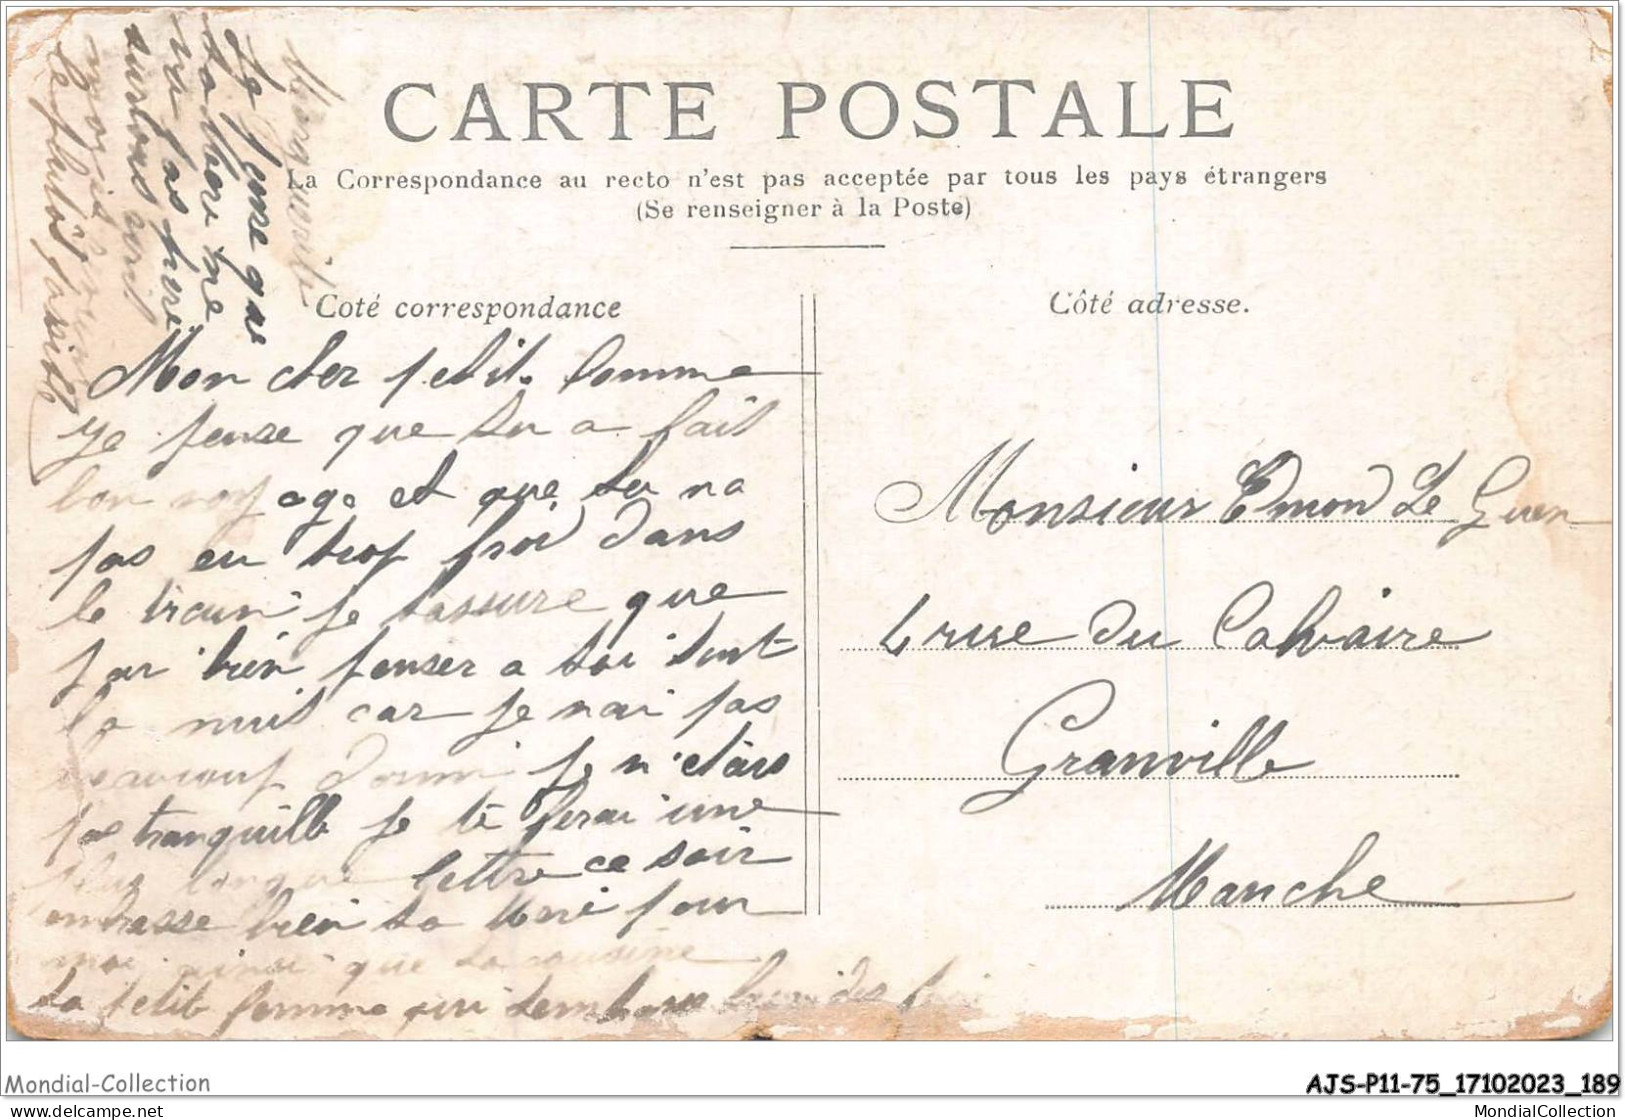 CARTE POSTALE
La Correspondance au recto n'est pas acceptée par tous les pays étrangers
(Se renseigner à la Poste)
Coté correspondance
Mon cher petit homme
Je pense que tu a fait
bon voyage et que tu na
pas eu trop froid dans
le train je tassure que
jai bien penser a toi tout
la nuit car je nai pas
beaucoup dormi je n'etais
pas tranquille je te ferai une
plus longue lettre ce soir
embrasse bien ta mere pour
moi ainsi que ta cousine
ta petit femme qui tembrasse bien des fois
Marguerite
Je pense que
ta mere ne
va pas
surtout
mois
le plutôt possible
Côté adresse.
Monsieur Emond Le Guen
4 rue du Calvaire
Granville
Manche
Mondial-Collection
AJS-P11-75_17102023_189
www.delcampe.net
MondialCollection